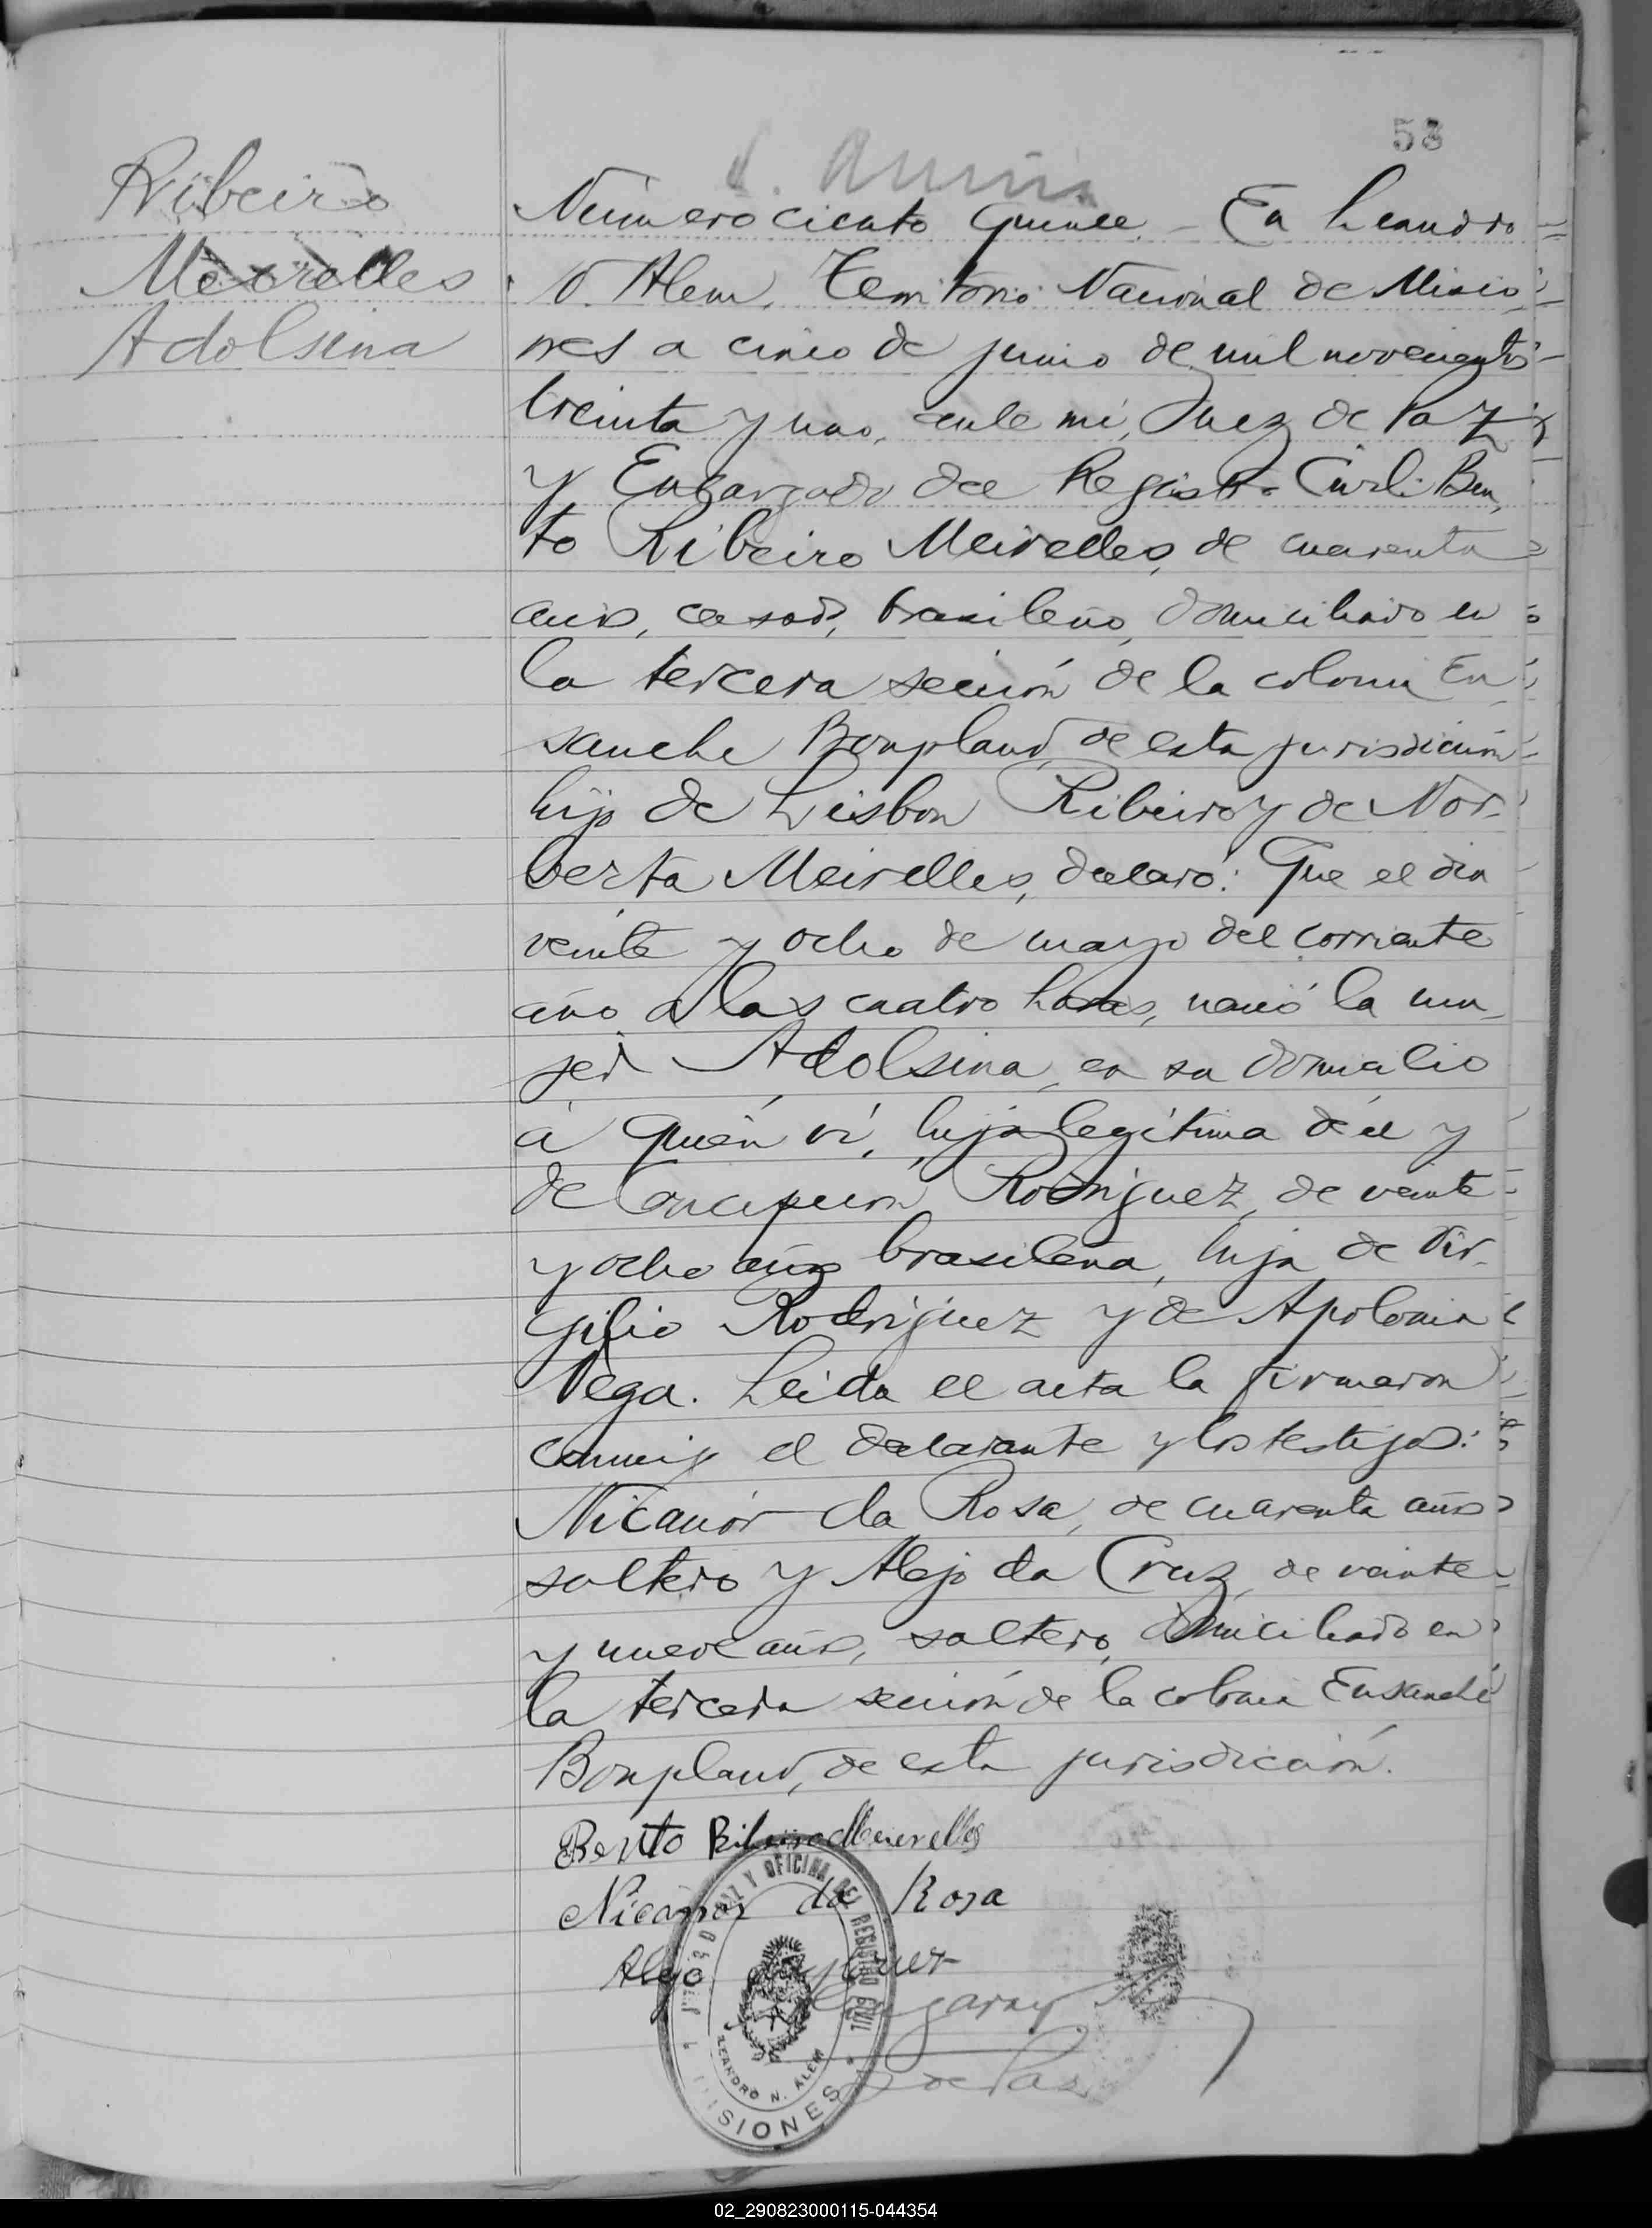 53
Ribeiro
Meirelles
Adolsina
Número ciento quince. - En Leandro
N. Alem, Territorio Nacional de Misio
nes a cinco de junio de mil novecientos
treinta y uno, ante mí, Juez de Paz
y Encargado del Registro Civil: Ben
to Ribeiro Meirelles, de cuarenta
años, casado, brasileño, domiciliado en
la tercera seción de la colonia En
sanche Bonpland, de esta jurisdición
hijo de Lisbon Ribeiro y de Nor-
berta Meirelles, declaró: Que el dia
veinte y ocho de mayo del corriente
año a las cuatro horas, nació la mu
jer Adolsina, en su domicilio
á quién ví, hija legítima de él y
de Concepcion Rodriguez, de veinte
y ocho años brasileña, hija de Vir-
gilio Rodriguez y de Apolonia
Vega. Leida el acta la firmaron
conmigo el declarante y los testigos:
Nicanór da Rosa, de cuarenta años
soltero y Alejo da Cruz, de veinte
y nueve años, soltero, domiciliado en
la tercera seción de la colonia Ensanche
Bonpland, de esta jurisdición.
Bento Ribeiro Meirelles
Nicanor da Rosa
Alejo
JUZGADO DE PAZ Y OFICINA DEL REGISTRO CIVIL
LEANDRO N. ALEM
MISIONES
J. de Paz
02_290823000115-044354